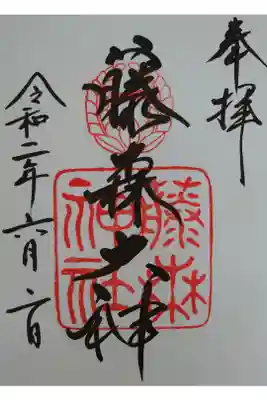 奉拝
藤森大神
藤森
神社
令和二年六月二日